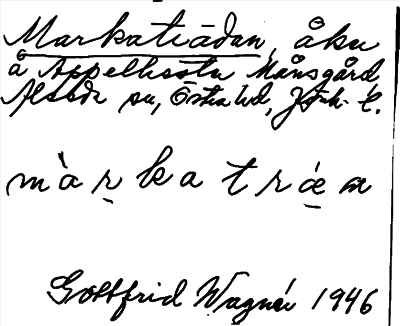 Markaträdan, åker
å Appelhester Månsgård
Alseda sn, Östra hd, Jönk. l.
m à r k a t r æ n
Gottfrid Wagnér 1946